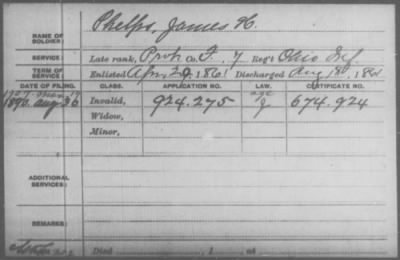 NAME OF SOLDIER: Phelps, James H.
SERVICE: Late rank, Co. F. 7 Reg't Ohio Inf
TERM OF SERVICE: Enlisted Apr. 1861 Discharged Aug 18", 1861
DATE OF FILING. CLASS. APPLICATION NO. LAW. CERTIFICATE NO.
1907 age
1890. Aug Invalid, 924.275 J 674.924
Widow,
Minor,
ADDITIONAL SERVICES:
REMARKS:
Died , 1 at